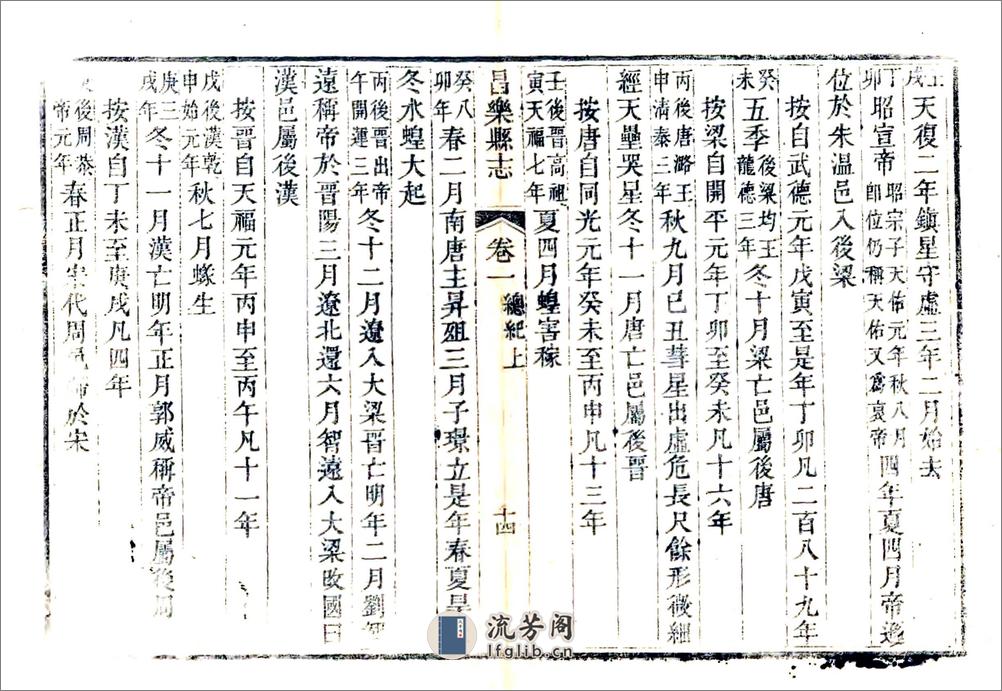 戌天復二年鎮星守虛三年二月始去
丁卯昭宣帝昭宗子天佑元年秋八月即位仍稱天佑又爲哀帝四年夏四月帝遜
位於朱溫邑入後梁
按自武德元年戊寅至是年丁卯凡二百八十九年
癸未五季後梁均王龍德三年冬十月梁亡邑屬後唐
按梁自開平元年丁卯至癸未凡十六年
丙申後唐潞王清泰三年秋九月己丑彗星出虛危長尺餘形微細
經天壘哭星冬十一月唐亡邑屬後晉
按唐自同光元年癸未至丙申凡十三年
壬寅後晉高祖天福七年夏四月蝗害稼
昌樂縣志 卷一 總紀上 十四
癸卯八年春二月南唐主昇殂三月子璟立是年春夏旱
冬水蝗大起
丙午後晉出帝開運三年冬十二月遼入大梁晉亡明年二月劉智
遠稱帝於晉陽三月遼北還六月智遠入大梁改國曰
漢邑屬後漢
按晉自天福元年丙申至丙午凡十一年
戊申後漢乾始元年秋七月蝝生
庚戌三年冬十一月漢亡明年正月郭威稱帝邑屬後周
按漢自丁未至庚戌凡四年
後周恭帝元年春正月宋代周邑歸於宋
流芳阁
lfglib.cn